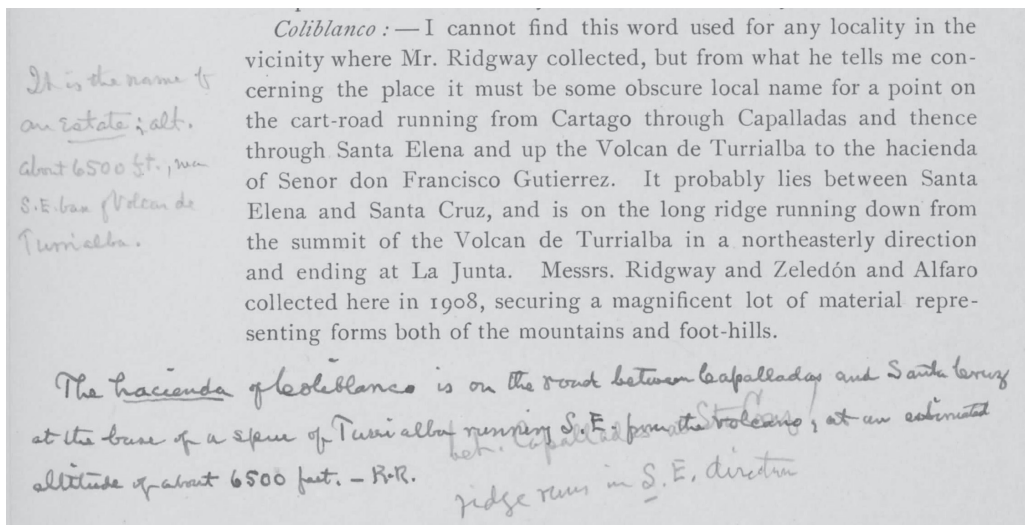 Coliblanco : — I cannot find this word used for any locality in the
vicinity where Mr. Ridgway collected, but from what he tells me con-
cerning the place it must be some obscure local name for a point on
the cart-road running from Cartago through Capalladas and thence
through Santa Elena and up the Volcan de Turrialba to the hacienda
of Senor don Francisco Gutierrez. It probably lies between Santa
Elena and Santa Cruz, and is on the long ridge running down from
the summit of the Volcan de Turrialba in a northeasterly direction
and ending at La Junta. Messrs. Ridgway and Zeledón and Alfaro
collected here in 1908, securing a magnificent lot of material repre-
senting forms both of the mountains and foot-hills.
It is the name of
an estate; alt.
about 6500 ft., near
S.E. base of Volcan de
Turrialba.
The hacienda of Coliblanco is on the road between Capalladas and Santa Cruz
at the base of a spur of Turrialba running S.E. from the volcano, at an estimated
altitude of about 6500 feet. — R.R.
bet. Capalladas
ridge runs in S.E. direction